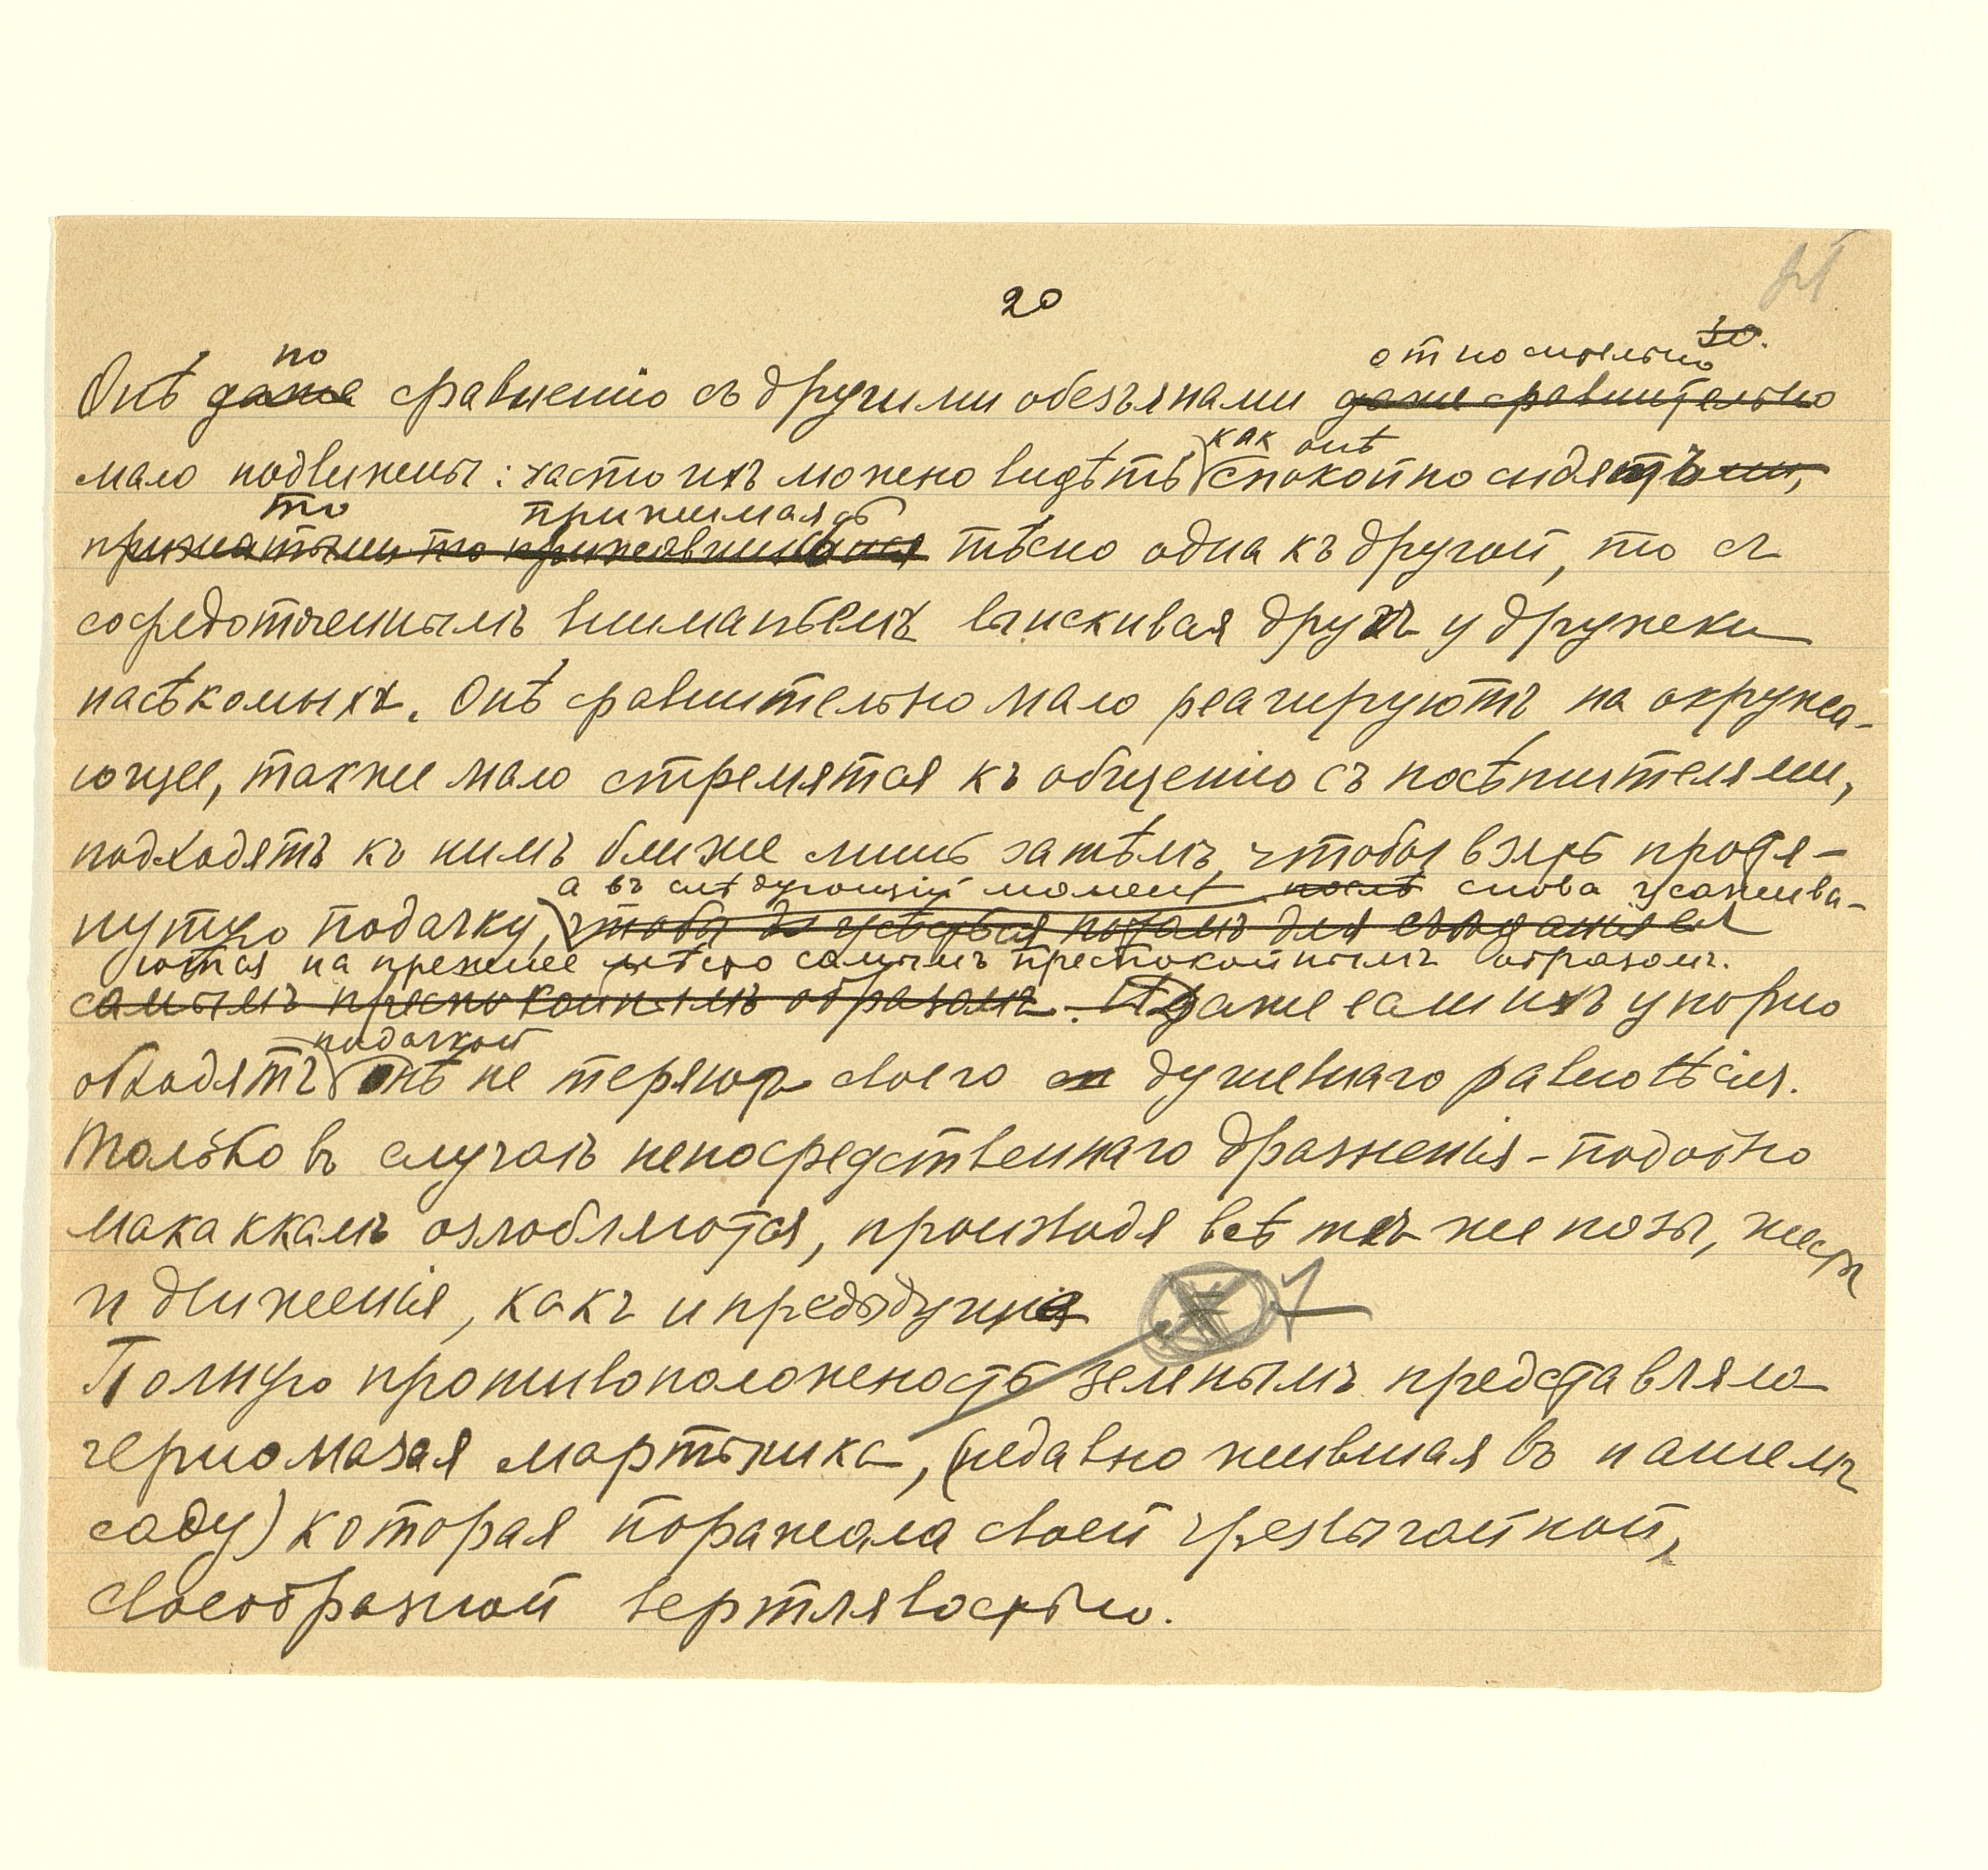 20
30.
по
относительно
Онѣ даже сравненію съ другими обезьянами даже сравнительно
как онѣ
мало подвижны: часто ихъ можно видѣть спокойно сидятъ
то прижимаясь
прижатыми то прижавшись тѣсно одна къ другой, то съ
сосредоточеннымъ вниманьемъ выискивая другъ у дружки
насѣкомыхъ. Онѣ сравнительно мало реагируютъ на окружа-
ющее, также мало стремятся къ общенію съ посѣтителями,
подходятъ къ нимъ ближе лишь затѣмъ, чтобы взять протя-
а въ слѣдующій момент послѣ снова усажива-
нутую подачку, чтобы
ются на прежнее мѣсто самымъ преспокойнымъ образомъ.
самымъ преспокойнымъ образомъ. И даже если ихъ упорно
подачкой
обходятъ онѣ не теряютъ своего душевнаго равновѣсія.
Только въ случаѣ непосредственнаго дразненія - подобно
макаккамъ озлобляются, производя всѣ тѣ же позы, жесты
и движенія, какъ и предыдущія
Полную противоположность зеленымъ представляла
черномазая мартышка, (недавно жившая въ нашемъ
саду) которая поражала своей чрезвычайной,
своеобразной вертлявостью.